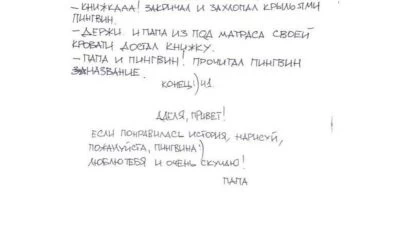 – КНИЖКАА! ЗАКРИЧАЛ И ЗАХЛОПАЛ КРЫЛЬЯМИ
ПИНГВИН.
– ДЕРЖИ. И ПАПА ИЗ ПОД МАТРАСА СВОЕЙ
КРОВАТИ ДОСТАЛ КНИЖКУ.
– ПАПА И ПИНГВИН! ПРОЧИТАЛ ПИНГВИН
НАЗВАНИЕ.
КОНЕЦ:) Ч1
АДЕЛЯ, ПРИВЕТ!
ЕСЛИ ПОНРАВИЛАСЬ ИСТОРИЯ, НАРИСУЙ,
ПОЖАЛУЙСТА, ПИНГВИНА:)
ЛЮБЛЮ ТЕБЯ И ОЧЕНЬ СКУЧАЮ!
ПАПА